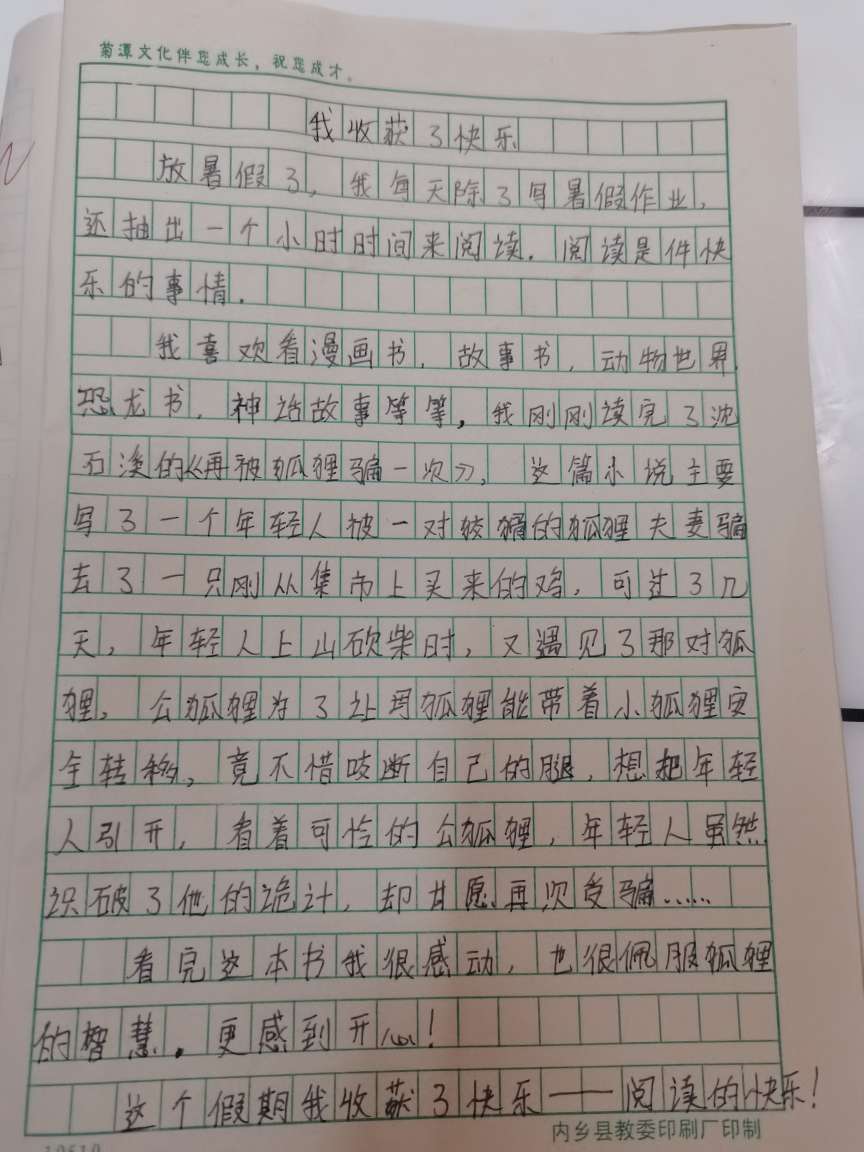 菊潭文化伴您成长，祝您成才。
我收获了快乐
放暑假了，我每天除了写暑假作业，
还抽出一个小时时间来阅读．阅读是件快
乐的事情．
我喜欢看漫画书．故事书．动物世界．
恐龙书．神话故事等等，我刚刚读完了沈
石溪的《再被狐狸骗一次》，这篇小说主要
写了一个年轻人被一对狡猾的狐狸夫妻骗
去了一只刚从集市上买来的鸡，可过了几
天，年轻人上山砍柴时，又遇见了那对狐
狸，公狐狸为了让母狐狸能带着小狐狸安
全转移，竟不惜咬断自己的腿，想把年轻
人引开，看着可怜的公狐狸，年轻人虽然
识破了他的诡计，却甘愿再次受骗……
看完这本书我很感动，也很佩服狐狸
的智慧．更感到开心！
这个假期我收获了快乐——阅读的快乐！
内乡县教委印刷厂印制